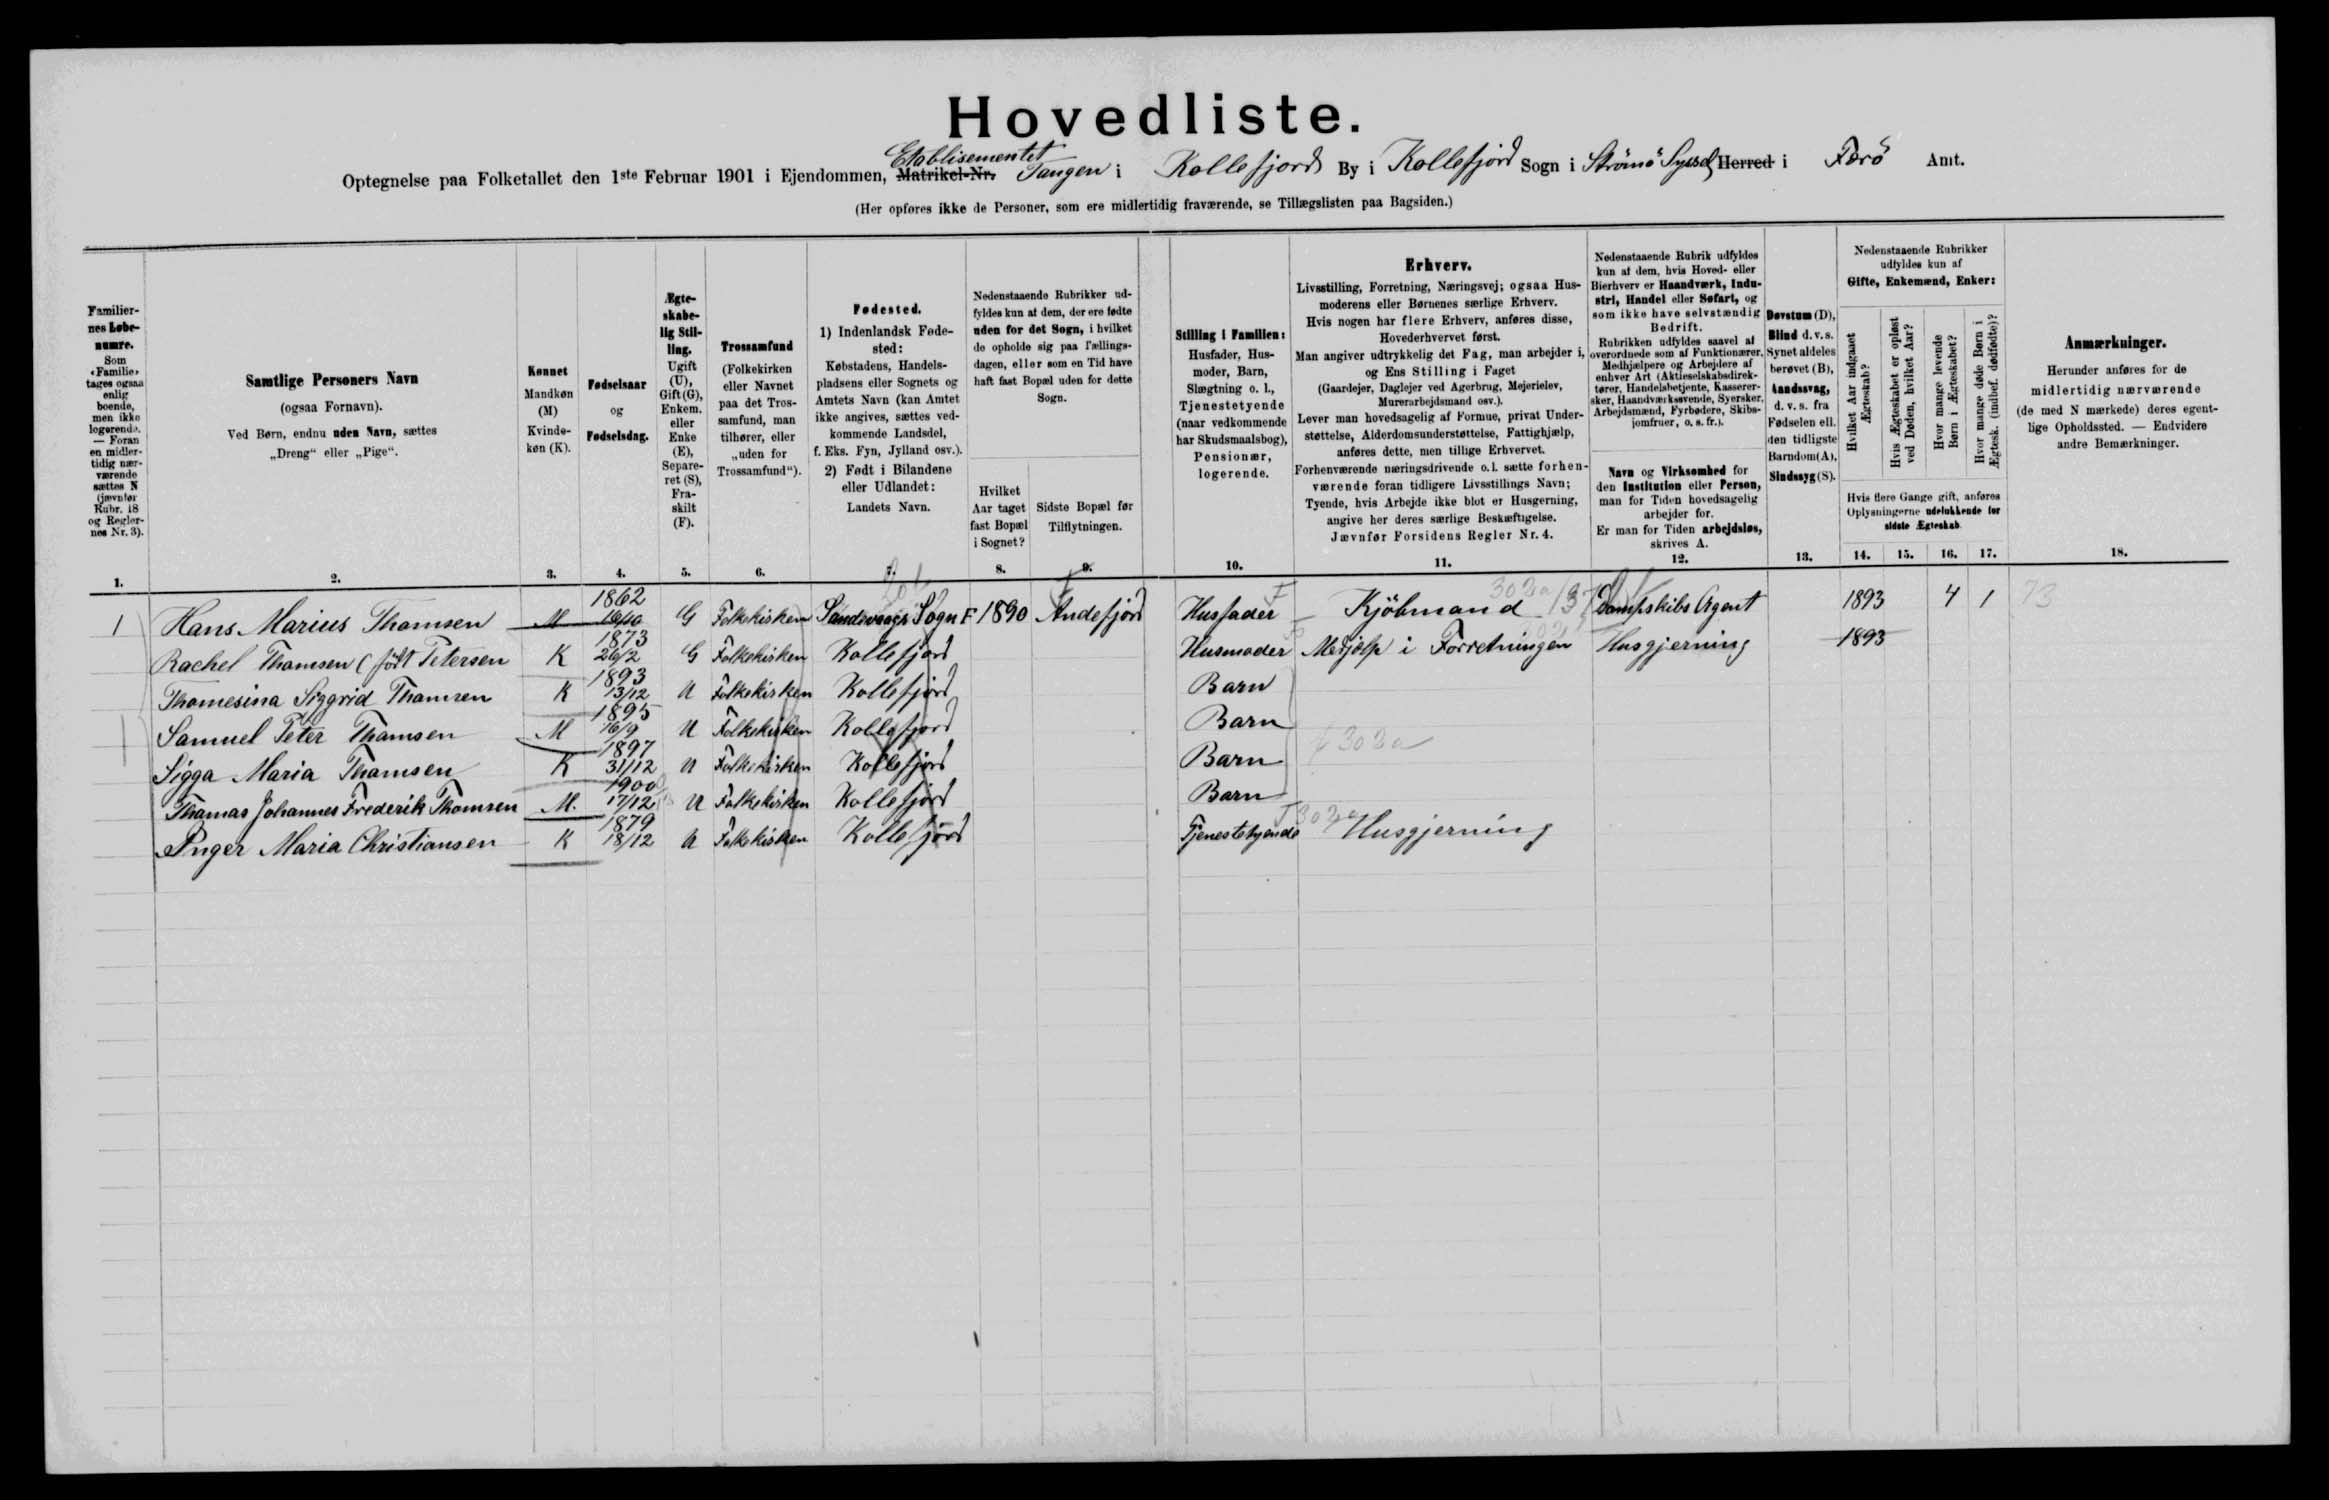 Hovedliste.
Etablisementet
Optegnelse paa Folketallet den 1ste Februar 1901 i Ejendommen, Matrikel-Nr. Tangen i Kollefjord By i Kollefjord Sogn i Strömö Syssel Herred i Færö Amt.
(Her opføres ikke de Personer, som ere midlertidig fraværende, se Tillægslisten paa Bagsiden.)
Familiernes Løbenumre.
Som «Familie» tages ogsaa enlig boende, men ikke logerende. — Foran en midlertidig nærværende sættes N (jævnfør Rubr. 18 og Reglernes Nr. 3).
Samtlige Personers Navn
(ogsaa Fornavn).
Ved Børn, endnu uden Navn, sættes
„Dreng“ eller „Pige“.
Kønnet
Mandkøn (M)
Kvindekøn (K).
Fødselsaar
og
Fødselsdag.
Ægteskabelig Stilling.
Ugift (U), Gift (G), Enkem. eller Enke (E), Separeret (S), Fraskilt (F).
Trossamfund
(Folkekirken eller Navnet paa det Trossamfund, man tilhører, eller „uden for Trossamfund“).
Fødested.
1) Indenlandsk Fødested:
Købstadens, Handelspladsens eller Sognets og Amtets Navn (kan Amtet ikke angives, sættes vedkommende Landsdel, f. Eks. Fyn, Jylland osv.).
2) Født i Bilandene eller Udlandet:
Landets Navn.
Nedenstaaende Rubrikker udfyldes kun af dem, der ere fødte uden for det Sogn, i hvilket de opholde sig paa Tællingsdagen, eller som en Tid have haft fast Bopæl uden for dette Sogn.
Hvilket Aar taget fast Bopæl i Sognet?
Sidste Bopæl før Tilflytningen.
Stilling i Familien:
Husfader, Husmoder, Barn, Slægtning o. l., Tjenestetyende (naar vedkommende har Skudsmaalsbog), Pensionær, logerende.
Erhverv.
Livsstilling, Forretning, Næringsvej; ogsaa Husmoderens eller Børnenes særlige Erhverv.
Hvis nogen har flere Erhverv, anføres disse, Hovederhvervet først.
Man angiver udtrykkelig det Fag, man arbejder i, og Ens Stilling i Faget
(Gaardejer, Daglejer ved Agerbrug, Mejerielev, Murerarbejdsmand osv.).
Lever man hovedsagelig af Formue, privat Understøttelse, Alderdomsunderstøttelse, Fattighjælp, anføres dette, men tillige Erhvervet.
Forhenværende næringsdrivende o. l. sætte forhenværende foran tidligere Livsstillings Navn;
Tyende, hvis Arbejde ikke blot er Husgerning, angive her deres særlige Beskæftigelse.
Jævnfør Forsidens Regler Nr. 4.
Nedenstaaende Rubrik udfyldes kun af dem, hvis Hoved- eller Bierhverv er Haandværk, Industri, Handel eller Søfart, og som ikke have selvstændig Bedrift.
Rubrikken udfyldes saavel af overordnede som af Funktionærer, Medhjælpere og Arbejdere af enhver Art (Aktieselskabsdirektører, Handelsbetjente, Kasserersker, Haandværkssvende, Syersker, Arbejdsmænd, Fyrbødere, Skibsjomfruer, o. s. fr.).
Navn og Virksomhed for den Institution eller Person, man for Tiden hovedsagelig arbejder for.
Er man for Tiden arbejdsløs, skrives A.
Døvstum (D),
Blind d. v. s. Synet aldeles berøvet (B),
Aandssvag, d. v. s. fra Fødselen ell. den tidligste Barndom (A),
Sindssyg (S).
Nedenstaaende Rubrikker udfyldes kun af
Gifte, Enkemænd, Enker:
Hvilket Aar indgaaet Ægteskab?
Hvis Ægteskabet er opløst ved Døden, hvilket Aar?
Hvor mange levende Børn i Ægteskabet?
Hvor mange døde Børn i Ægtesk. (indbef. dødfødte)?
Hvis flere Gange gift, anføres Oplysningerne udelukkende for sidste Ægteskab
Anmærkninger.
Herunder anføres for de midlertidig nærværende (de med N mærkede) deres egentlige Opholdssted. — Endvidere andre Bemærkninger.
1. 2. 3. 4. 5. 6. 7. 8. 9. 10. 11. 12. 13. 14. 15. 16. 17. 18.
1 Hans Marius Thomsen M 1862 G Folkekirken Sandevaags Sogn F 1890 Andefjord Husfader Kjöbmand Dampskibs Agent 1893 4 1 73
Rachel Thomsen (født Petersen K 1873 26/2 G Folkekirken Kollefjord Husmoder Medjælp i Forretningen Husgjerning 1893
Thomesina Siggrid Thomsen K 1893 13/12 U Folkekirken Kollefjord Barn
Samuel Peter Thomsen M 1895 16/9 U Folkekirken Kollefjord Barn
Sigga Maria Thomsen K 1897 31/12 U Folkekirken Kollefjord Barn
Thomas Johannes Frederik Thomsen M. 1900 17/12 U Folkekirken Kollefjord Barn
Inger Maria Christiansen K 1879 18/12 U Folkekirken Kollefjord Tjenestetyende Husgjerning